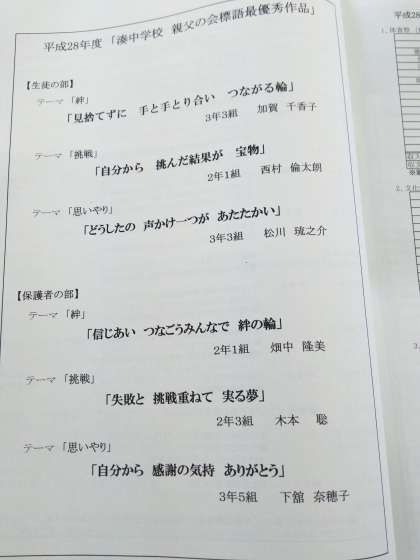 平成28年度 「湊中学校 親父の会標語最優秀作品」
【生徒の部】
テーマ 「絆」
「見捨てずに 手と手とり合い つながる輪」
3年3組 加賀 千香子
テーマ 「挑戦」
「自分から 挑んだ結果が 宝物」
2年1組 西村 倫太朗
テーマ 「思いやり」
「どうしたの 声かけ一つが あたたかい」
3年3組 松川 琉之介
【保護者の部】
テーマ 「絆」
「信じあい つなごうみんなで 絆の輪」
2年1組 畑中 隆美
テーマ 「挑戦」
「失敗と 挑戦重ねて 実る夢」
2年3組 木本 聡
テーマ 「思いやり」
「自分から 感謝の気持 ありがとう」
3年5組 下舘 奈穂子
平成28
1.
2. 文化
3.